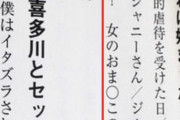 的虐待を受けた日
ジャニーさん／ジ
！ 女のおま〇この
喜多川とセッ
僕はイタズラさ